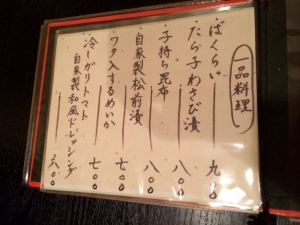 一品料理
・ばくらい 九〇〇
・たら子わさび漬 八〇〇
・子持ち昆布 八〇〇
・自家製松前漬 七〇〇
・ワタ入するめいか 七〇〇
・冷しがりトマト
自家製和風ドレッシング 六〇〇